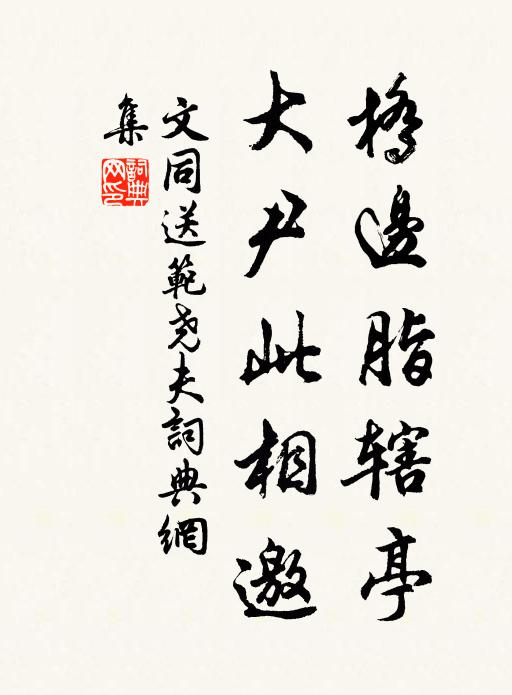 橋邊脂辖亭
大尹此相邀
文同送範堯夫詞典網
集
詞典网印